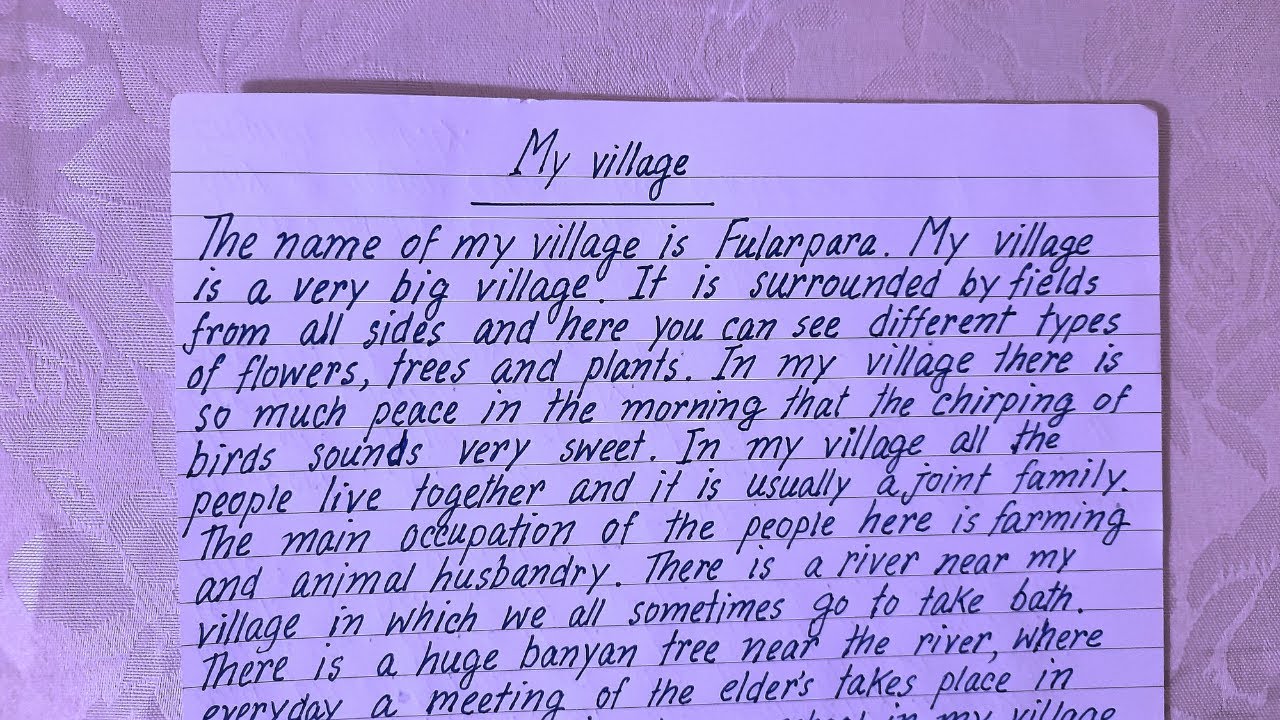 My village
The name of my village is Fularpara. My village
is a very big village. It is surrounded by fields
from all sides and here you can see different types
of flowers, trees and plants. In my village there is
so much peace in the morning that the chirping of
birds sounds very sweet. In my village all the
people live together and it is usually a joint family.
The main occupation of the people here is farming
and animal husbandry. There is a river near my
village in which we all sometimes go to take bath.
There is a huge banyan tree near the river, where
everyday a meeting of the elder's takes place in
school in my village